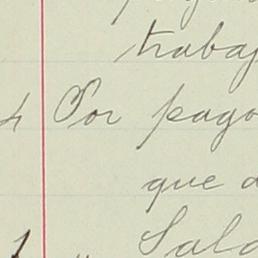 trabaj
4 Por pago
que d
1 " Sald